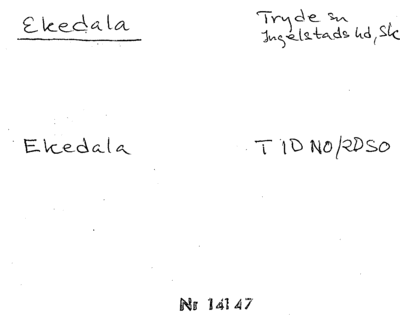 Ekedala
Tryde sn
Ingelstads hd, Sk
Ekedala
T 1D NO/2D SO
Nr 14147